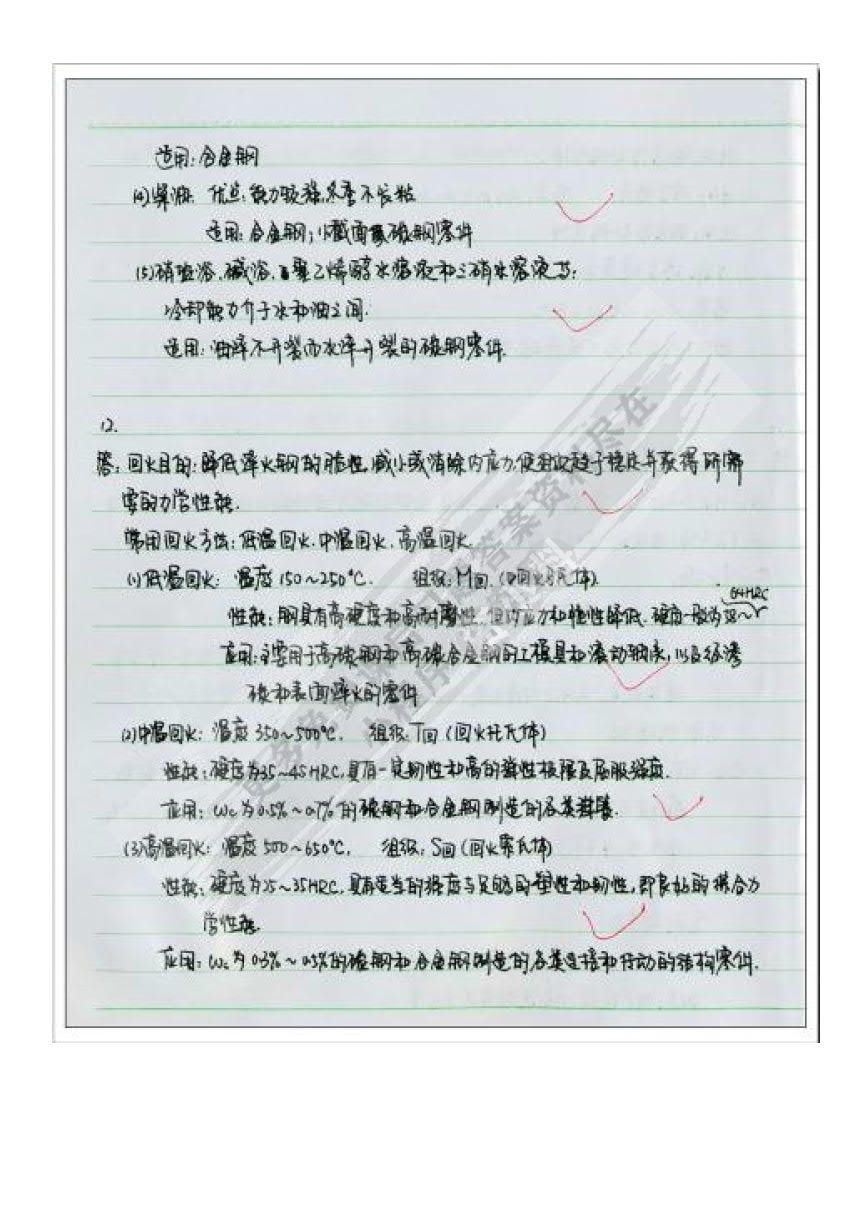 适用:合金钢
(4)柴油: 优点:能力较强,冬季不发粘
适用:合金钢;小截面碳钢零件
(5)硝盐浴、碱浴、聚乙烯醇水溶液和三硝水溶液等:
冷却能力介于水和油之间.
适用:油淬不开裂而水淬开裂的碳钢零件.
12.
答:回火目的:降低淬火钢的脆性,减小或消除内应力,使组织趋于稳定并获得所需
要的力学性能.
常用回火方法:低温回火、中温回火、高温回火
(1)低温回火: 温度150~250°C. 组织:M回.(回火马氏体).
64HRC
性能:钢具有高硬度和高耐磨性,但内应力和脆性降低. 硬度一般为58~
应用:主要用于高碳钢和高碳合金钢的工模具和滚动轴承,以及经渗
碳和表面淬火的零件
(2)中温回火: 温度350~500°C. 组织:T回(回火托氏体)
性能:硬度为35~45HRC,具有一定韧性和高的弹性极限及屈服强度.
应用: Wc为0.5%~0.7%的碳钢和合金钢制造的各类弹簧.
(3)高温回火: 温度500~650°C. 组织:S回(回火索氏体)
性能:硬度为25~35HRC,具有适当的强度与足够的塑性和韧性,即良好的综合力
学性能.
应用: Wc为0.3%~0.5%的碳钢和合金钢制造的各类连接和传动的结构零件.